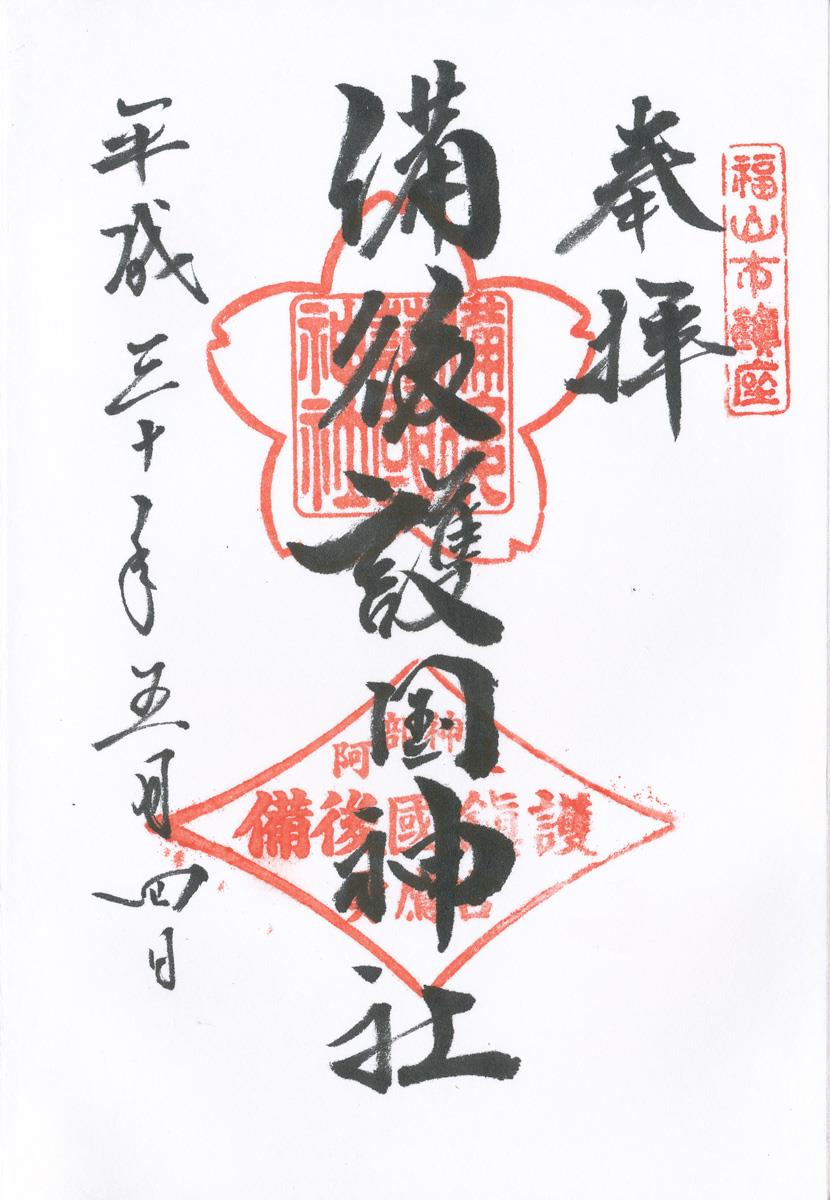 福山市鎮座
奉拝
備後護国神社
平成三十年五月四日
備後護國神社
阿部神社
備後國鎮護